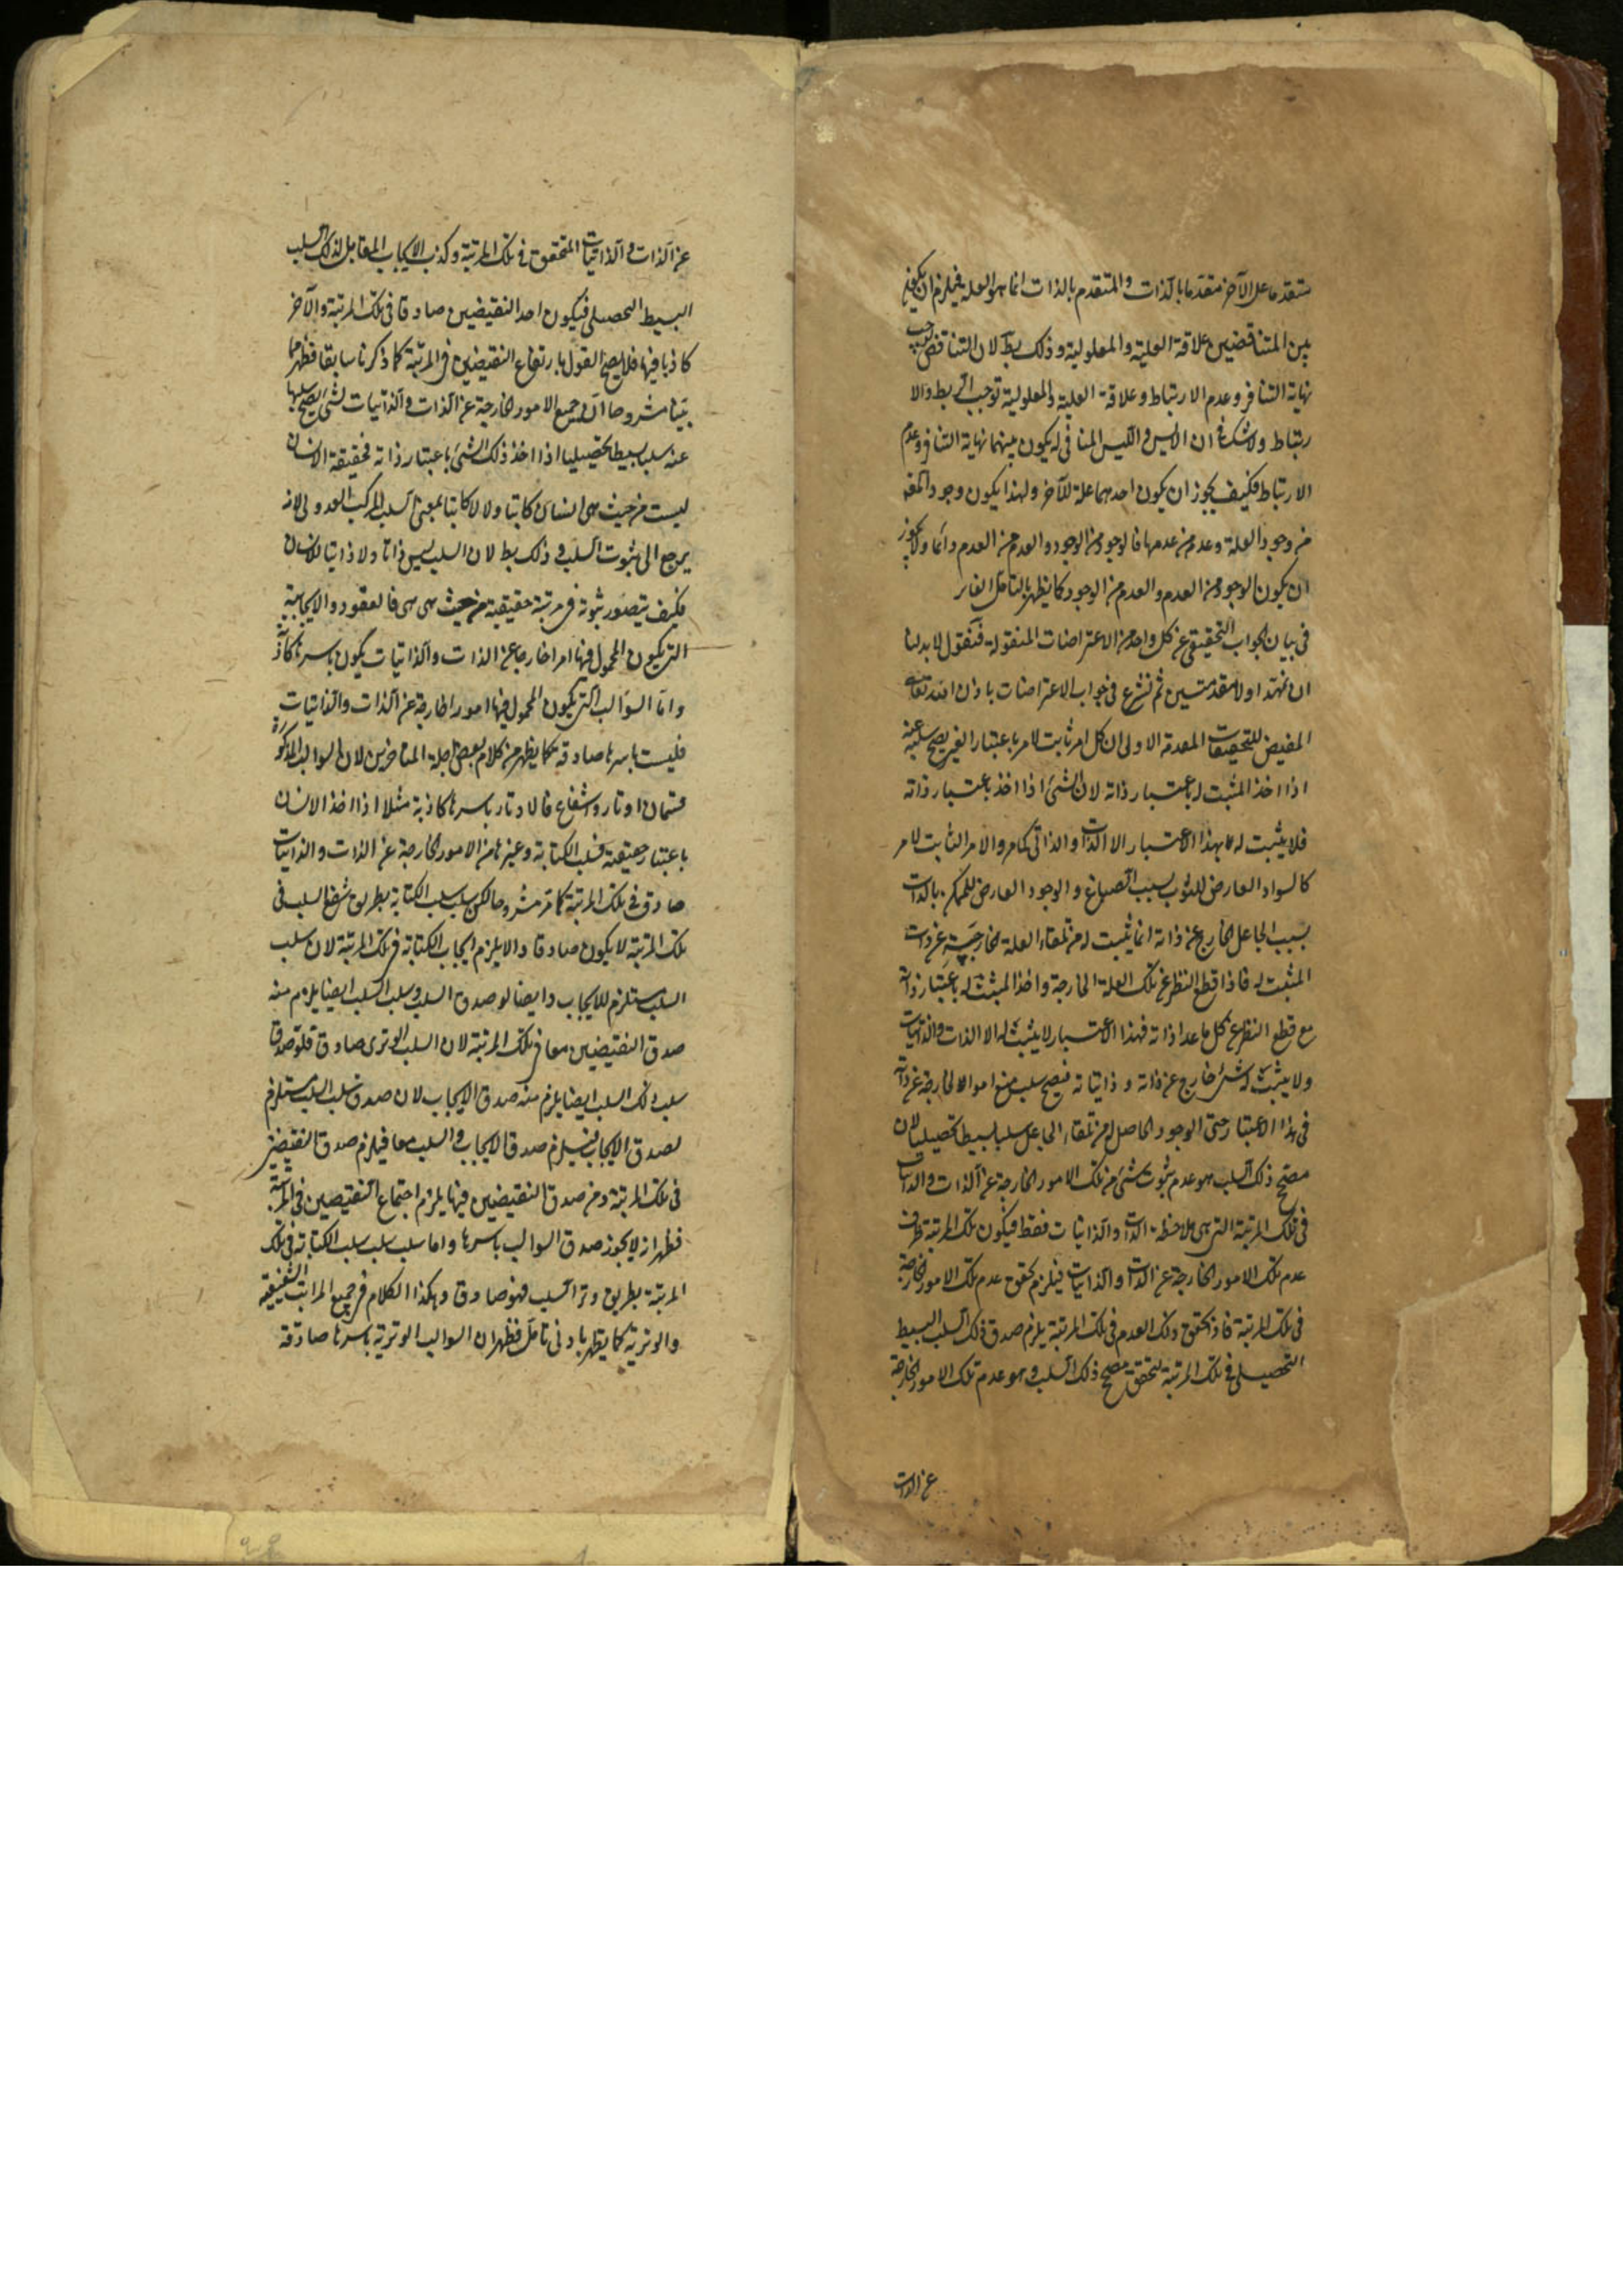 متقدما على الآخر متقدما بالذات والمتقدم بالذات انما هو العلة فيلزم ان يكون
بين المتناقضين علاقة العلية والمعلولية وذلك بط لان التناقض يوجب
نهاية التنافر وعدم الارتباط وعلاقة العلية والمعلولية توجب الربط والا
رتباط ولا شك في ان الايس والليس المنافي له يكون بينهما نهاية التنافر وعدم
الارتباط فكيف يجوز ان يكون احدهما علة للآخر ولهذا يكون وجود المعلول
من وجود العلة وعدمه من عدمها فالوجود من الوجود والعدم من العدم دائما ولا يجوز
ان يكون الوجود من العدم والعدم من الوجود كما يظهر بالتامل الغاير
في بيان الجواب التحقيقي عن كل واحد من الاعتراضات المنقولة فنقول لا بد لنا
ان نمهد اولا مقدمتين ثم نشرع في جواب الاعتراضات باذن الله تعالى
المفيض للتحقيقات المقدمة الاولى ان كل امر ثابت لامر باعتبار الغير يصح سلبه عنه
اذا اخذ المثبت له باعتبار ذاته لان الشئ اذا اخذ باعتبار ذاته
فلا يثبت له بهذا الاعتبار الا الذات او الذاتي كما مر والامر الثابت لامر
كالسواد العارض للثوب بسبب الصباغ والوجود العارض للممكن بالذات
بسبب الجاعل الخارج عن ذاته انما يثبت له من تلقاء العلة الخارجية عن ذات
المثبت له فاذا قطع النظر عن تلك العلة الخارجة واخذ المثبت له باعتبار ذاته
مع قطع النظر عن كل ما عدا ذاته فبهذا الاعتبار لا يثبت له الا الذات والذاتيات
ولا يثبت له شئ خارج عن ذاته وذاتياته فيصح سلب جميع الامور الخارجة عن ذاته
في هذا الاعتبار حتى الوجود الحاصل له من تلقاء الجاعل سلبا بسيطا تحصيليا لان
مصحح ذلك السلب هو عدم ثبوت شئ من تلك الامور الخارجة عن الذات والذاتيات
في تلك المرتبة التي هي ملاحظة الذات والذاتيات فقط فيكون تلك المرتبة ظرف
عدم تلك الامور الخارجة عن الذات والذاتيات فيلزم تحقق عدم تلك الامور الخارجة
في تلك المرتبة فاذا تحقق ذلك العدم في تلك المرتبة يلزم صدق ذلك السلب البسيط
التحصيلي في تلك المرتبة لتحقق مصحح ذلك السلب وهو عدم تلك الامور الخارجة
عن الذات
عن الذات والذاتيات المتحقق في تلك المرتبة وكذب الايجاب المقابل لذلك السلب
البسيط التحصيلي فيكون احد النقيضين صادقا في تلك المرتبة والآخر
كاذبا فيها فلا يصح القول بارتفاع النقيضين في المرتبة كما ذكرنا سابقا فظهر مما
بينا مشروحا ان جميع الامور الخارجة عن الذات والذاتيات لشئ يصح سلبها
عنه سلبا بسيطا تحصيليا اذا اخذ ذلك الشئ باعتبار ذاته فحقيقة الانسان
ليست من حيث هي انسان كاتبا ولا لا كاتبا بمعنى السلب المركب العدولي لانه
يرجع الى ثبوت السلب وذلك بط لان السلب ليس ذاتا ولا ذاتيا للانسان
فكيف يتصور ثبوته في مرتبة حقيقية من حيث هي هي فالعقود الايجابية
التي يكون المحمول فيها امرا خارجا عن الذات والذاتيات يكون باسرها كاذبة
واما السوالب التي يكون المحمول فيها امورا خارجة عن الذات والذاتيات
فليست باسرها صادقة كما يظهر من كلام بعض اجلة المتاخرين لان السوالب المذكورة
قسمان اوتار واشفاع فالاوتار باسرها كاذبة مثلا اذا اخذ الانسان
باعتبار حقيقته فسلب الكتابة وغيرها من الامور الخارجة عن الذات والذاتيات
صادق في تلك المرتبة كما مر مشروحا لكن سلب سلب الكتابة بطريق شفع السلب في
تلك المرتبة لا يكون صادقا والا يلزم ايجاب الكتابة في تلك المرتبة لان سلب
السلب مستلزم للايجاب وايضا لو صدق السلب وسلب السلب ايضا يلزم منه
صدق النقيضين معا في تلك المرتبة لان السلب الوتري صادق فلو صدق
سلب ذلك السلب ايضا يلزم منه صدق الايجاب لان صدق سلب السلب مستلزم
لصدق الايجاب فيلزم صدق الايجاب والسلب معا فيلزم صدق النقيضين
في تلك المرتبة ومن صدق النقيضين فيها يلزم اجتماع النقيضين في المرتبة
فظهر انه لا يجوز صدق السوالب باسرها واما سلب سلب سلب الكتابة في تلك
المرتبة بطريق وتر السلب فهو صادق وهكذا الكلام في جميع المراتب الشفيعية
والوترية كما يظهر بادنى تامل فظهر ان السوالب الوترية باسرها صادقة